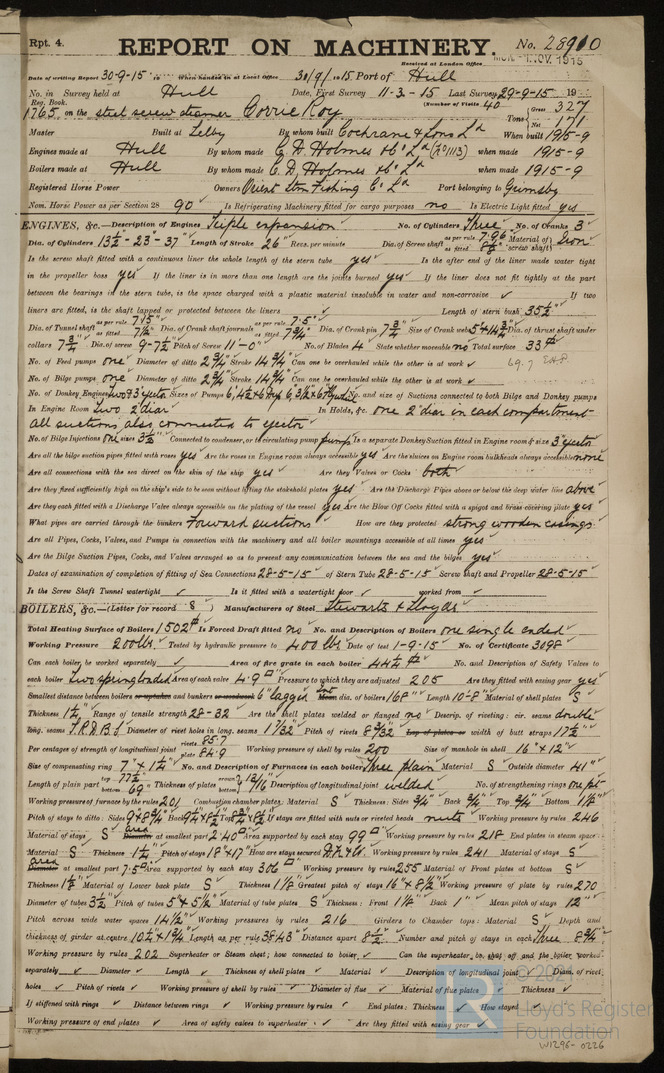 Rpt. 4. REPORT ON MACHINERY. No. 28910
Received at London Office MON. 1. NOV. 1915
Date of writing Report 30-9-15 19 When handed in at Local Office 30/9/1915 Port of Hull
No. in Survey held at Hull Date, First Survey 11-3-15 Last Survey 29-9-15 19
Reg. Book. (Number of Visits 40
1765 on the steel screw steamer Corrie Roy Tons Gross 327 Net 171
Master Built at Selby By whom built Cochrane & Sons Ld When built 1915-9
Engines made at Hull By whom made C. D. Holmes & Co Ld (No 1113) when made 1915-9
Boilers made at Hull By whom made C. D. Holmes & Co Ld when made 1915-9
Registered Horse Power Owners Orient Stm Fishing Co Ld Port belonging to Grimsby
Nom. Horse Power as per Section 28 90 Is Refrigerating Machinery fitted for cargo purposes no Is Electric Light fitted yes
ENGINES, &c.—Description of Engines Triple expansion No. of Cylinders Three No. of Cranks 3
Dia. of Cylinders 13½-23-37" Length of Stroke 26" Revs. per minute Dia. of Screw shaft as per rule 7.96 as fitted 8⅜" Material of screw shaft Iron
Is the screw shaft fitted with a continuous liner the whole length of the stern tube yes Is the after end of the liner made water tight
in the propeller boss yes If the liner is in more than one length are the joints burned yes If the liner does not fit tightly at the part
between the bearings in the stern tube, is the space charged with a plastic material insoluble in water and non-corrosive ✓ If two
liners are fitted, is the shaft lapped or protected between the liners ✓ Length of stern bush 35½"
Dia. of Tunnel shaft as per rule 7.15" as fitted 7½" Dia. of Crank shaft journals as per rule 7.5" as fitted 7¾" Dia. of Crank pin 7¾" Size of Crank webs Dia. of thrust shaft under
collars 7¾" Dia. of screw 9-7½" Pitch of Screw 11-0" No. of Blades 4 State whether moveable no Total surface 33
No. of Feed pumps one Diameter of ditto 2¾" Stroke 14¾" Can one be overhauled while the other is at work ✓
No. of Bilge pumps one Diameter of ditto 2¾" Stroke 14¾" Can one be overhauled while the other is at work ✓
No. of Donkey Engines Sizes of Pumps No. and size of Suctions connected to both Bilge and Donkey pumps
In Engine Room Two 2" diar In Holds, &c. one 2" diar in each compartment
All suctions also connected to ejector
No. of Bilge Injections one sizes 3½" Connected to condenser, or to circulating pump pump Is a separate Donkey Suction fitted in Engine room & size 3" ejector
Are all the bilge suction pipes fitted with roses yes Are the roses in Engine room always accessible yes Are the sluices on Engine room bulkheads always accessible none
Are all connections with the sea direct on the skin of the ship yes Are they Valves or Cocks both
Are they fixed sufficiently high on the ship's side to be seen without lifting the stokehold plates yes Are the Discharge Pipes above or below the deep water line above
Are they each fitted with a Discharge Valve always accessible on the plating of the vessel yes Are the Blow Off Cocks fitted with a spigot and brass covering plate yes
What pipes are carried through the bunkers Forward suctions How are they protected strong wooden casings
Are all Pipes, Cocks, Valves, and Pumps in connection with the machinery and all boiler mountings accessible at all times yes
Are the Bilge Suction Pipes, Cocks, and Valves arranged so as to prevent any communication between the sea and the bilges yes
Dates of examination of completion of fitting of Sea Connections 28-5-15 of Stern Tube 28-5-15 Screw shaft and Propeller 28-5-15
Is the Screw Shaft Tunnel watertight ✓ Is it fitted with a watertight door ✓ worked from ✓
BOILERS, &c.—(Letter for record S) Manufacturers of Steel Stewarts & Lloyds
Total Heating Surface of Boilers 1502 Is Forced Draft fitted no No. and Description of Boilers one single ended
Working Pressure 200lbs Tested by hydraulic pressure to 400lbs Date of test 1-9-15 No. of Certificate 3098
Can each boiler be worked separately ✓ Area of fire grate in each boiler 44½ No. and Description of Safety Valves to
each boiler Two spring loaded Area of each valve 4.9 Pressure to which they are adjusted 205 Are they fitted with easing gear yes
Smallest distance between boilers or uptakes and bunkers or woodwork 6" lagged dia. of boilers 168" Length 10-8" Material of shell plates S
Thickness 1¼" Range of tensile strength 28-32 Are the shell plates welded or flanged no Descrip. of riveting: cir. seams double
long. seams T.R.D.B.S Diameter of rivet holes in long. seams 1 7/32" Pitch of rivets 8 3/32" Lap of plates or width of butt straps 17½"
Per centages of strength of longitudinal joint rivets 85.7 plate 84.9 Working pressure of shell by rules 200 Size of manhole in shell 16" x 12"
Size of compensating ring 7" x 1¼" No. and Description of Furnaces in each boiler Three plain Material S Outside diameter 41"
Length of plain part top 77½" bottom 69" Thickness of plates crown bottom 13/16" Description of longitudinal joint welded No. of strengthening rings one pt
Working pressure of furnace by the rules 201 Combustion chamber plates: Material S Thickness: Sides ¾" Back ¾" Top ¾" Bottom 1⅛"
Pitch of stays to ditto: Sides 9 x 8¾" Back 9¼ x 8½" Top 8¾ x 8½" If stays are fitted with nuts or riveted heads nuts Working pressure by rules 246
Material of stays S Diameter area at smallest part 2.40 Area supported by each stay 99 Working pressure by rules 218 End plates in steam space
Material S Thickness 1¼" Pitch of stays 18" x 17" How are stays secured D.N. & W. Working pressure by rules 241 Material of stays S
Diameter area at smallest part 7.5 Area supported by each stay 306 Working pressure by rules 255 Material of Front plates at bottom S
Thickness 1⅛" Material of Lower back plate S Thickness 1⅛ Greatest pitch of stays 16" x 8½" Working pressure of plate by rules 270
Diameter of tubes 3½" Pitch of tubes 5" x 5½" Material of tube plates S Thickness: Front 1⅛" Back 1" Mean pitch of stays 12"
Pitch across wide water spaces 14½" Working pressures by rules 216 Girders to Chamber tops: Material S Depth and
thickness of girder at centre 10½ x 1¾" Length as per rule 38.43" Distance apart 8½" Number and pitch of stays in each Three 8¾"
Working pressure by rules 202 Superheater or Steam chest; how connected to boiler ✓ Can the superheater be shut off and the boiler worked
separately ✓ Diameter ✓ Length ✓ Thickness of shell plates ✓ Material ✓ Description of longitudinal joint ✓ Diam. of rivet
holes ✓ Pitch of rivets ✓ Working pressure of shell by rules ✓ Diameter of flue ✓ Material of flue plates ✓ Thickness ✓
If stiffened with rings ✓ Distance between rings ✓ Working pressure by rules ✓ End plates: Thickness ✓ How stayed ✓
Working pressure of end plates ✓ Area of safety valves to superheater ✓ Are they fitted with easing gear ✓
© 2021
Lloyd's Register
Foundation
W1296-0226